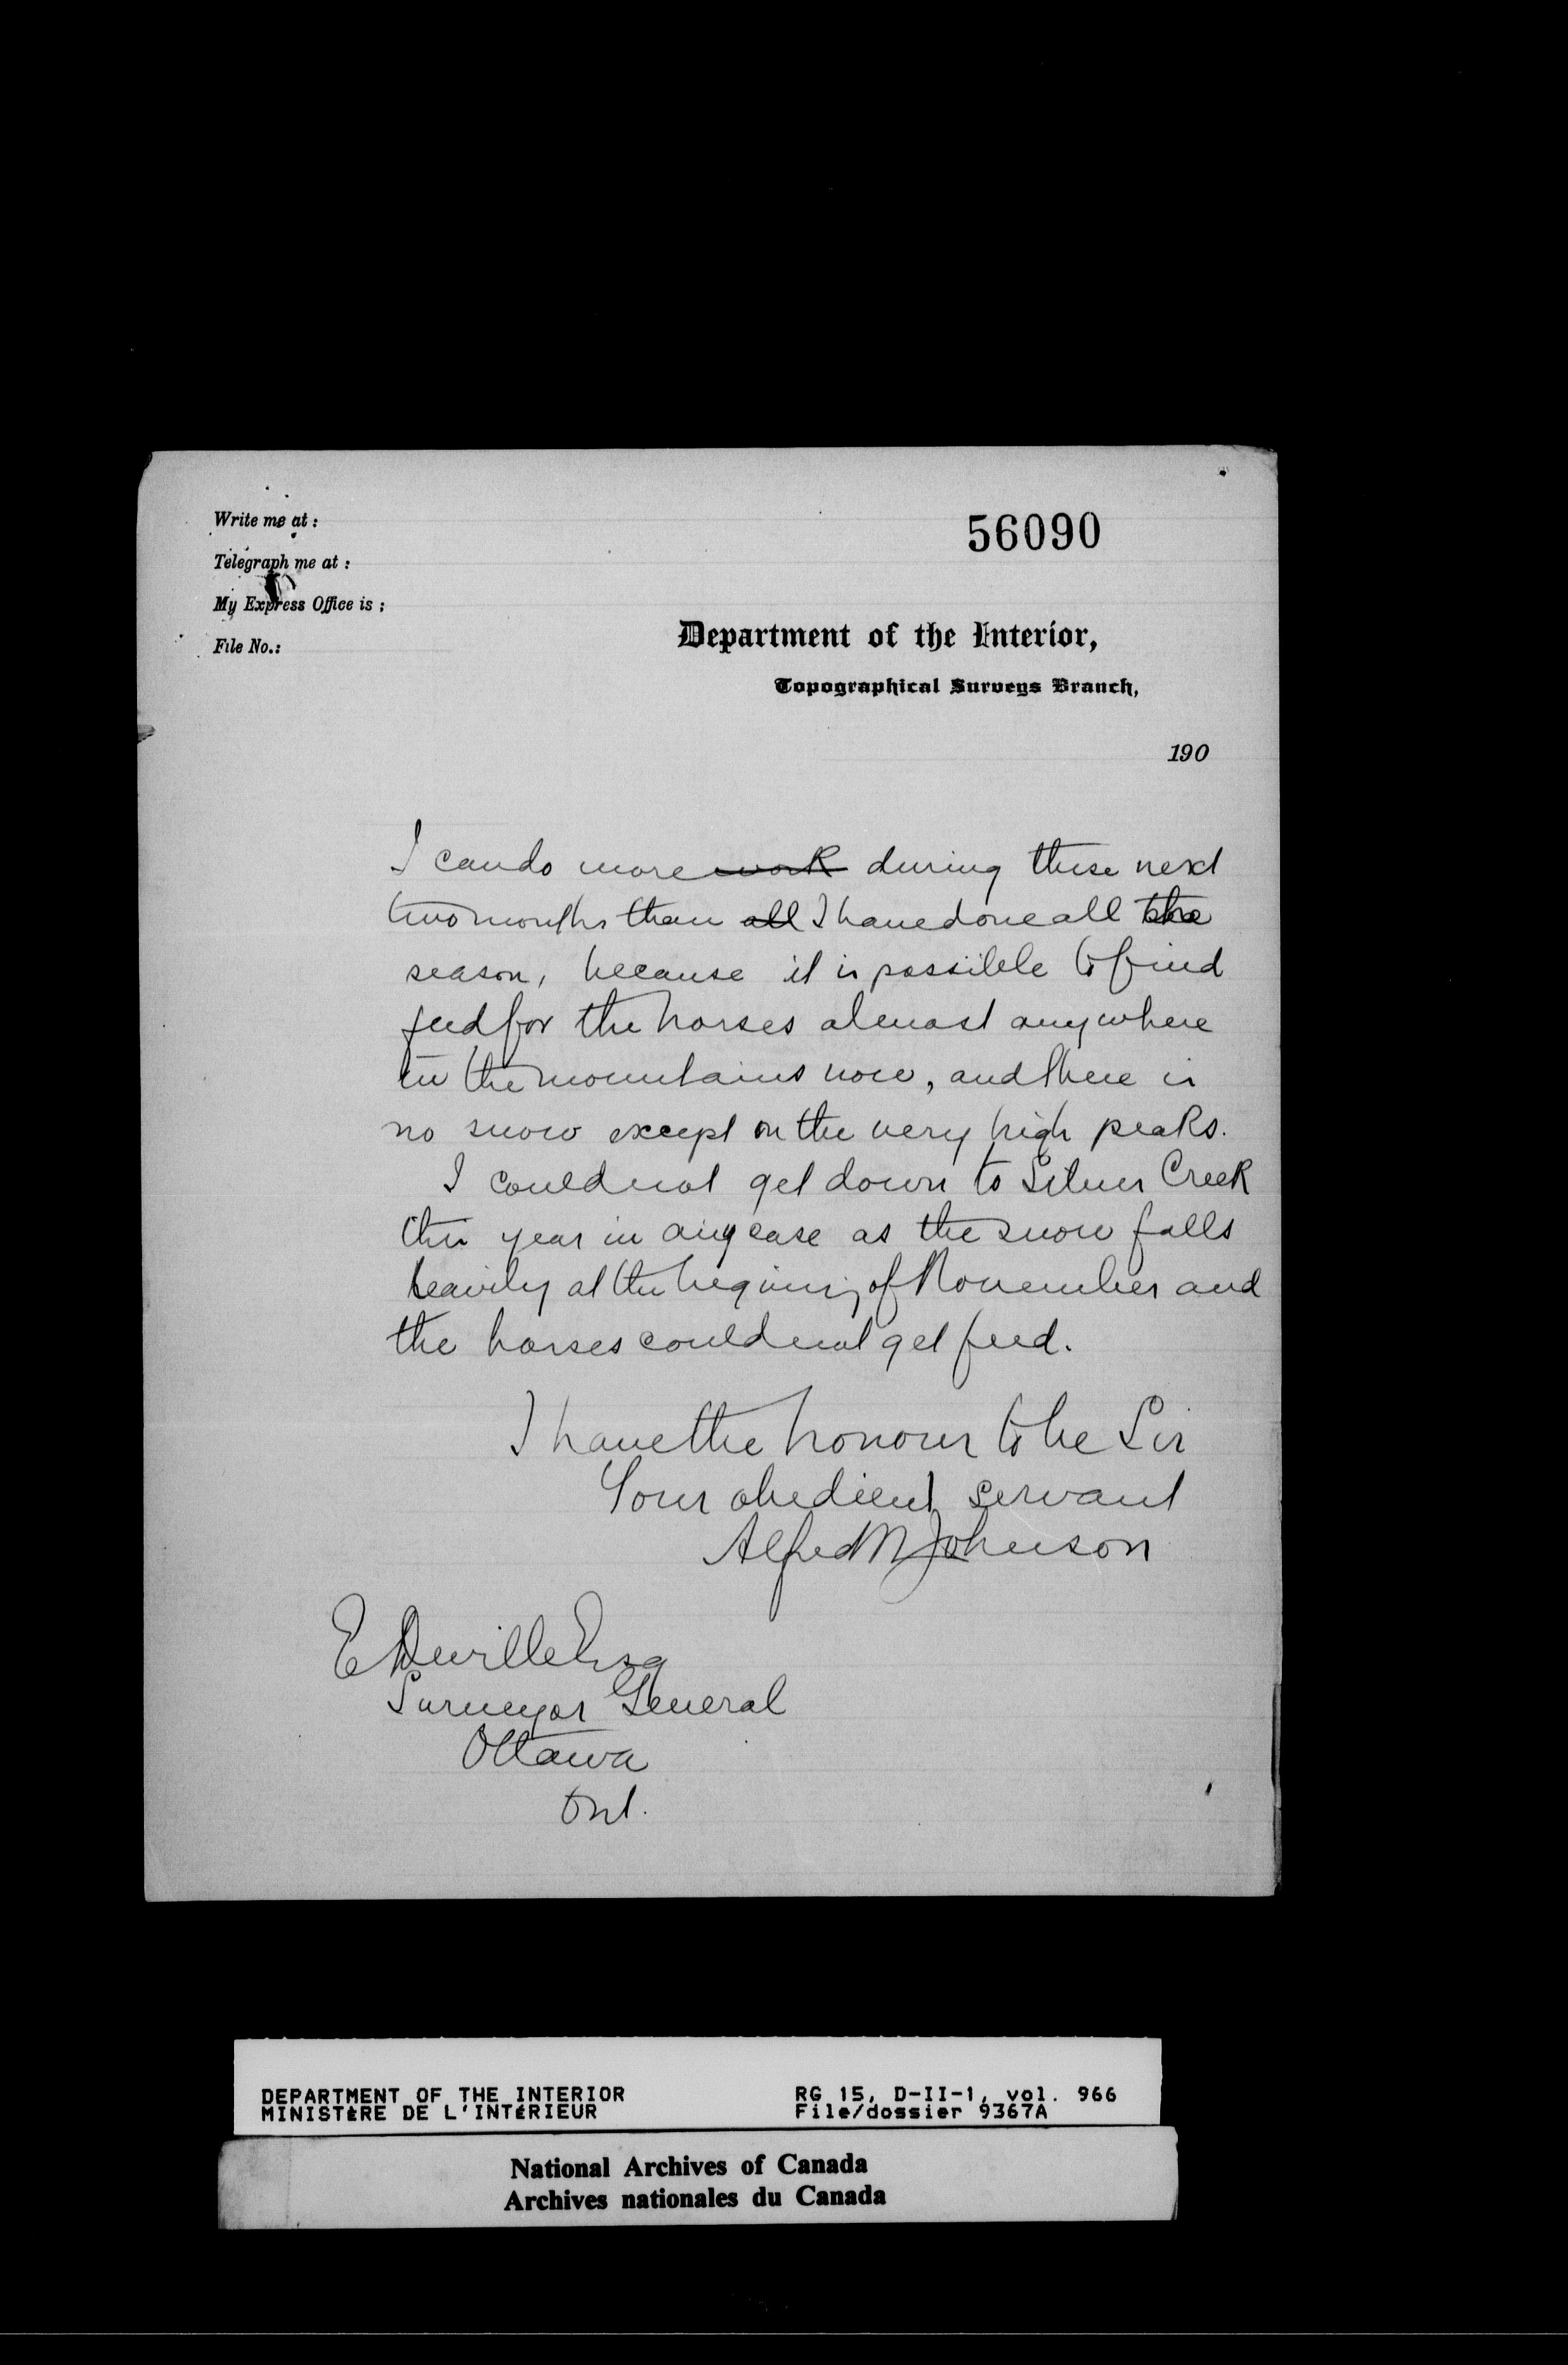 Write me at :
Telegraph me at :
My Express Office is :
File No.:
56090
Department of the Interior,
Topographical Surveys Branch,
190
I can do more work during these next
two months than all I have done all the
season, because it is possible to find
feed for the horses almost anywhere
in the mountains now, and there is
no snow except on the very high peaks.
I could not get down to Silver Creek
this year in any case as the snow falls
heavily at the begining of November and
the horses could not get feed.
I have the honour to be Sir
Your obedient servant
Alfred M Johnson
E Deville Esq
Surveyor General
Ottawa
Ont.
DEPARTMENT OF THE INTERIOR
MINISTÈRE DE L'INTÉRIEUR
RG 15, D-II-1, vol. 966
File/dossier 9367A
National Archives of Canada
Archives nationales du Canada